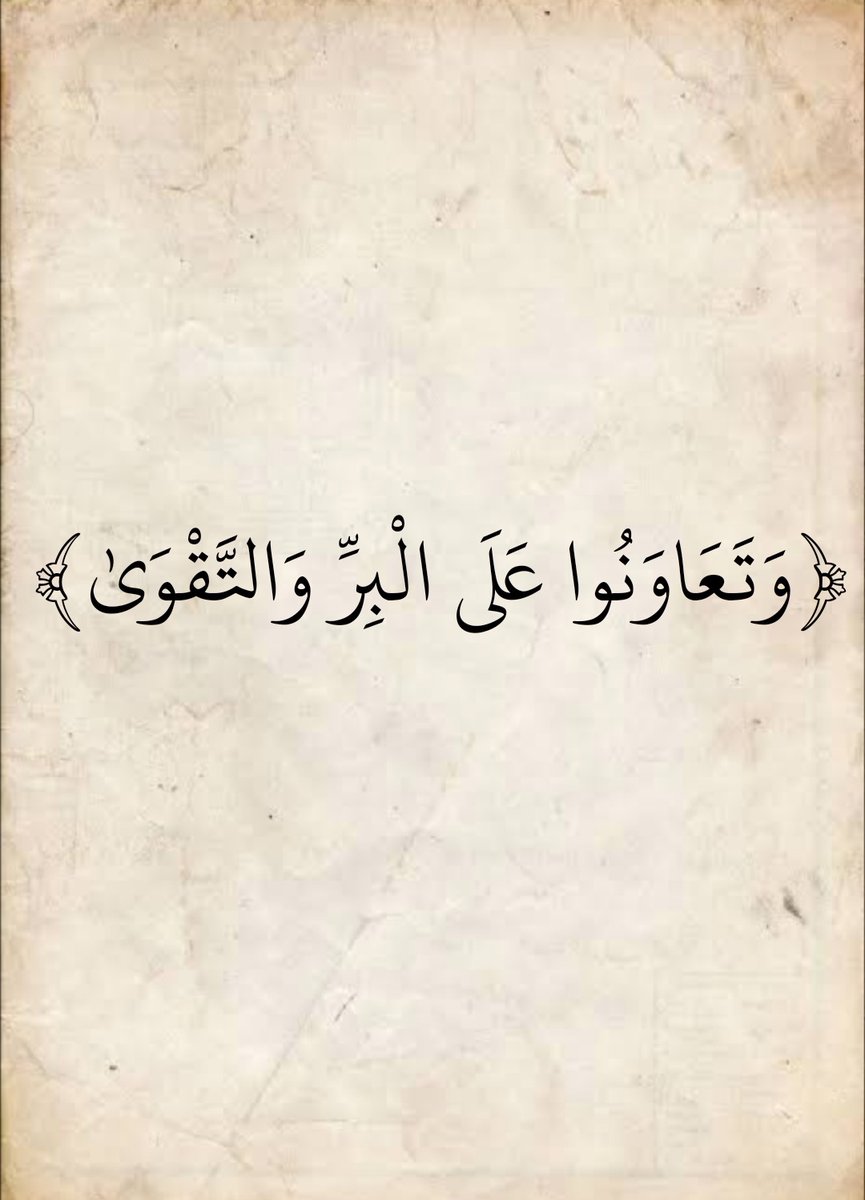 ﴿وَتَعَاوَنُوا عَلَى الْبِرِّ وَالتَّقْوَىٰ﴾